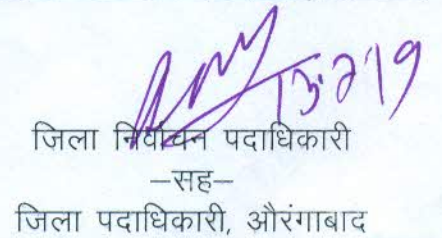 13.2.19
जिला निर्वाचन पदाधिकारी
–सह–
जिला पदाधिकारी, औरंगाबाद